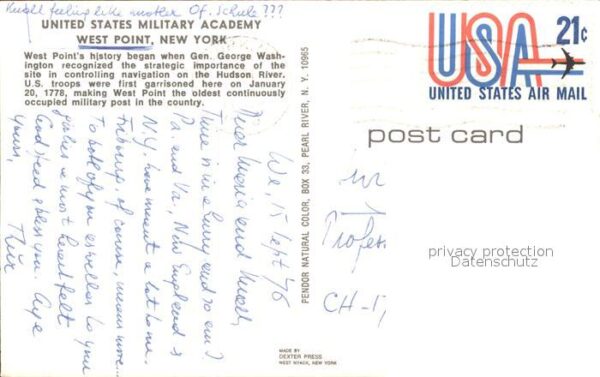 Knoll feeling like mother Of. Schulz ???
UNITED STATES MILITARY ACADEMY
WEST POINT, NEW YORK
West Point's history began when Gen. George Wash-
ington recognized the strategic importance of the
site in controlling navigation on the Hudson River.
U.S. troops were first garrisoned here on January
20, 1778, making West Point the oldest continuously
occupied military post in the country.
We, 15 Sept '76
Dear Maria and
Time is in a hurry and so am I
Pa and Va., New England &
N.Y. have meant a lot to me.
Fribourg, of course, means more...
To both of you as well as to your
most heart felt
God speed & bless you. Aye
Yours,
PENDOR NATURAL COLOR, BOX 33, PEARL RIVER, N. Y. 10965
MADE BY
DEXTER PRESS
WEST NYACK, NEW YORK
USA 21c
UNITED STATES AIR MAIL
post card
Profes
CH-17
privacy protection
Datenschutz